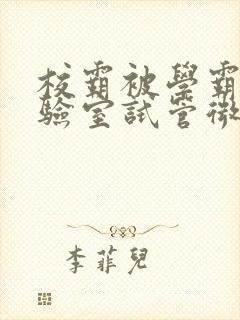 校霸被學霸
驗室試管微
李菲兒